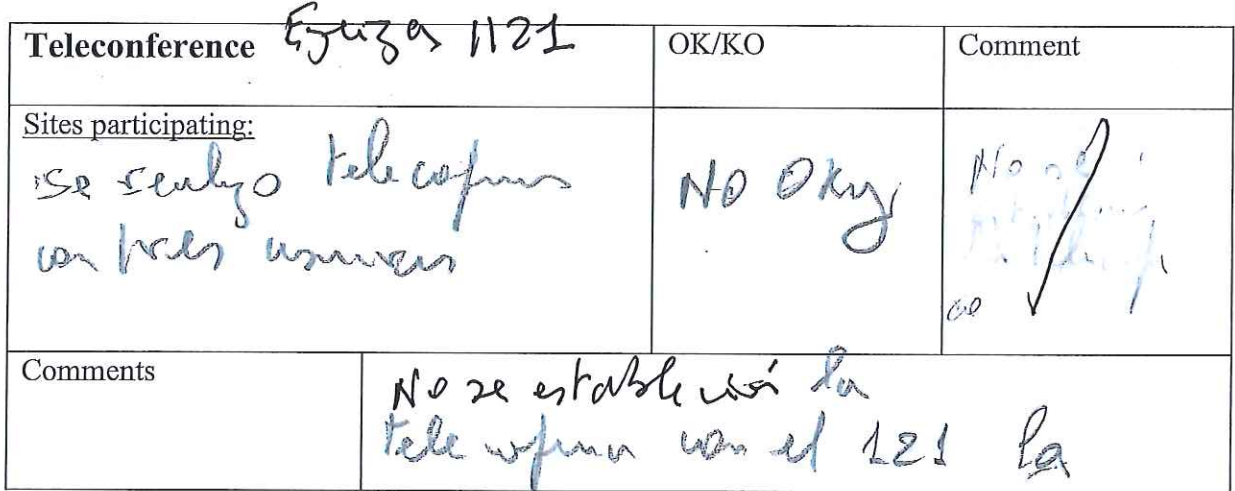 Teleconference 1121
OK/KO
Comment
Sites participating:
se realizo teleconferencia
NO Okay
No se
con tres usuarios
Comments
No se estableció la
teleconferencia con el 121 la